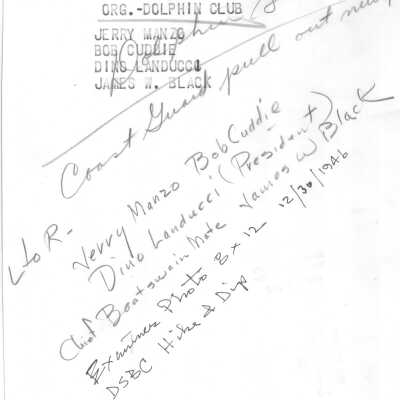 ORG.-DOLPHIN CLUB
JERRY MANZO
BOB CUDDIE
DINO LANDUCCI
JAMES W. BLACK
Dolphin
Coast Guard pull out
L to R -
Jerry Manzo Bob Cuddie
Dino Landucci (President)
Chief Boatswain Mate James W Black
Examiner Photo 8 x 12 12/30/1946
DSBC Hike & Dip